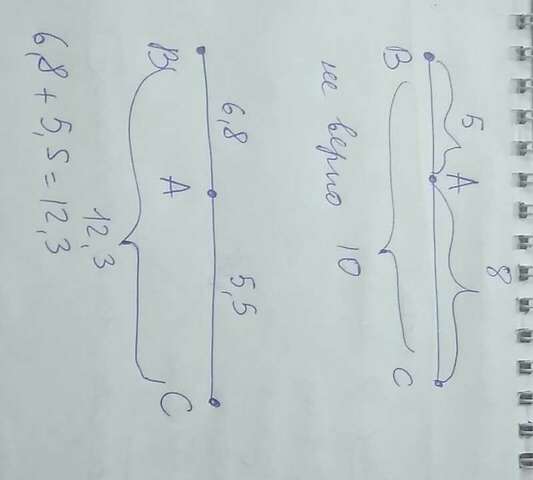 8
5
A
B C
не верно 10
6,8 5,5
B A C
12,3
6,8 + 5,5 = 12,3